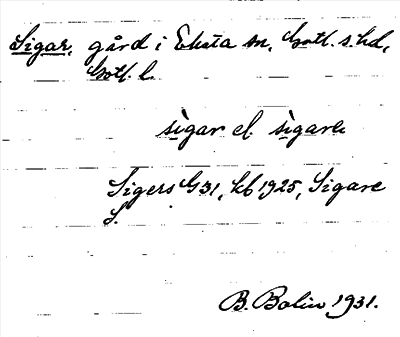 Sigar, gård i Eksta sn, Gotl. s. hd,
Gotl. l.
sìgar el. sìgare
Sigers G31, kb 1925, Sigare
S.
B. Bolin 1931.